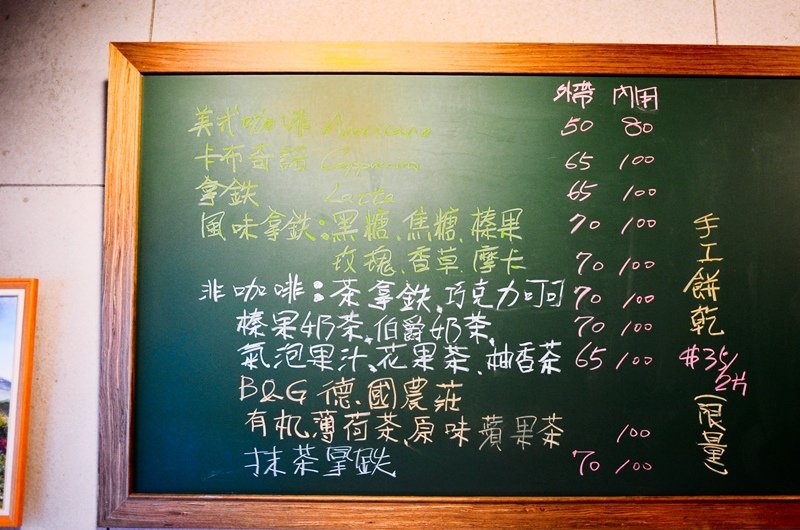 外帶 內用
美式咖啡 Americano 50 80
卡布奇諾 Cappuccino 65 100
拿鐵 Latte 65 100
風味拿鐵：黑糖、焦糖、榛果 70 100
玫瑰、香草、摩卡 70 100
非咖啡：茶拿鐵、巧克力可可 70 100
榛果奶茶、伯爵奶茶、 70 100
氣泡果汁、花果茶、柚香茶 65 100
B&G 德國農莊
有机薄荷茶、原味蘋果茶 100
抹茶拿鉄 70 100
手工餅乾
$35/2片
（限量）